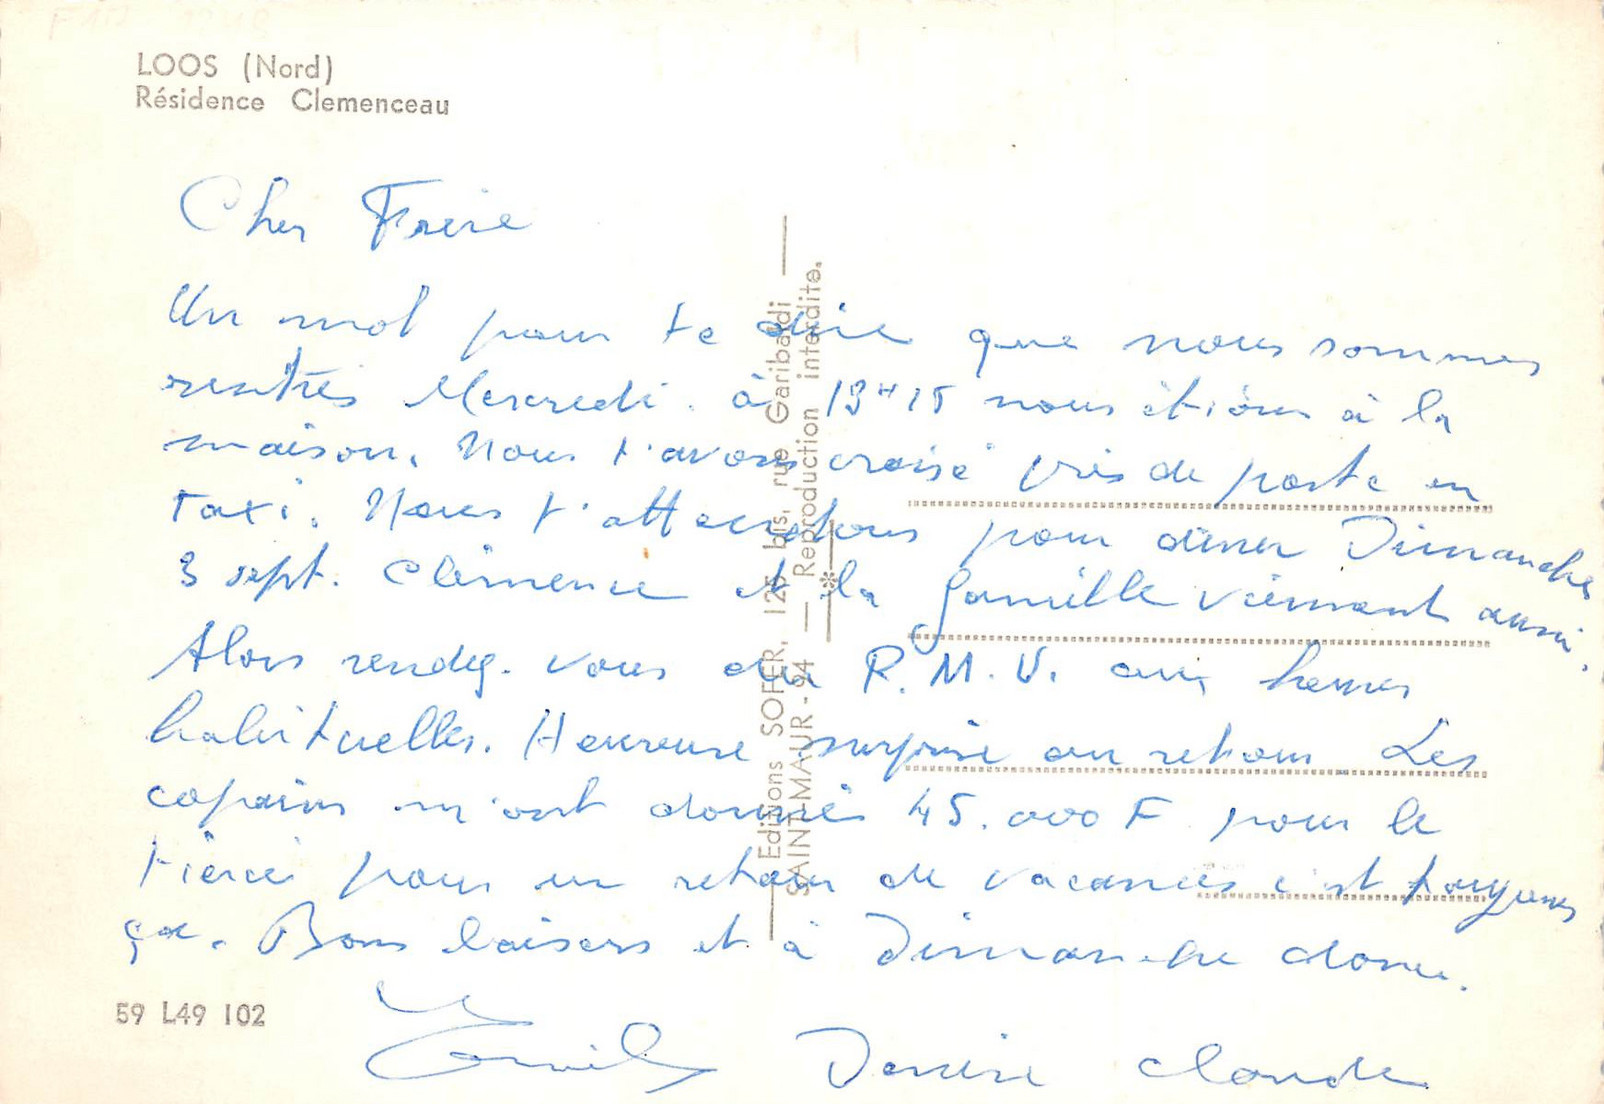 LOOS (Nord)
Résidence Clemenceau
Cher Frère
Un mot pour te dire que nous sommes
rentrés Mercredi à 13H15 nous étions à la
maison. Nous t'avons croisé près de poste en
Taxi. Nous t'attendons pour diner Dimanche
3 sept. Clémence et la famille viennent aussi.
Alors rendez-vous au P.M.U. aux heures
habituelles. Heureuse surprise au retour Les
copains m'ont donnés 45.000 F pour le
Tiercé pour un retour de vacances c'est toujours
ça. Bons baisers et à Dimanche donc.
Denise Claude
59 L49 102
Editions SOFER, 125 bis, rue Garibaldi
SAINT-MAUR-94 — Reproduction interdite.